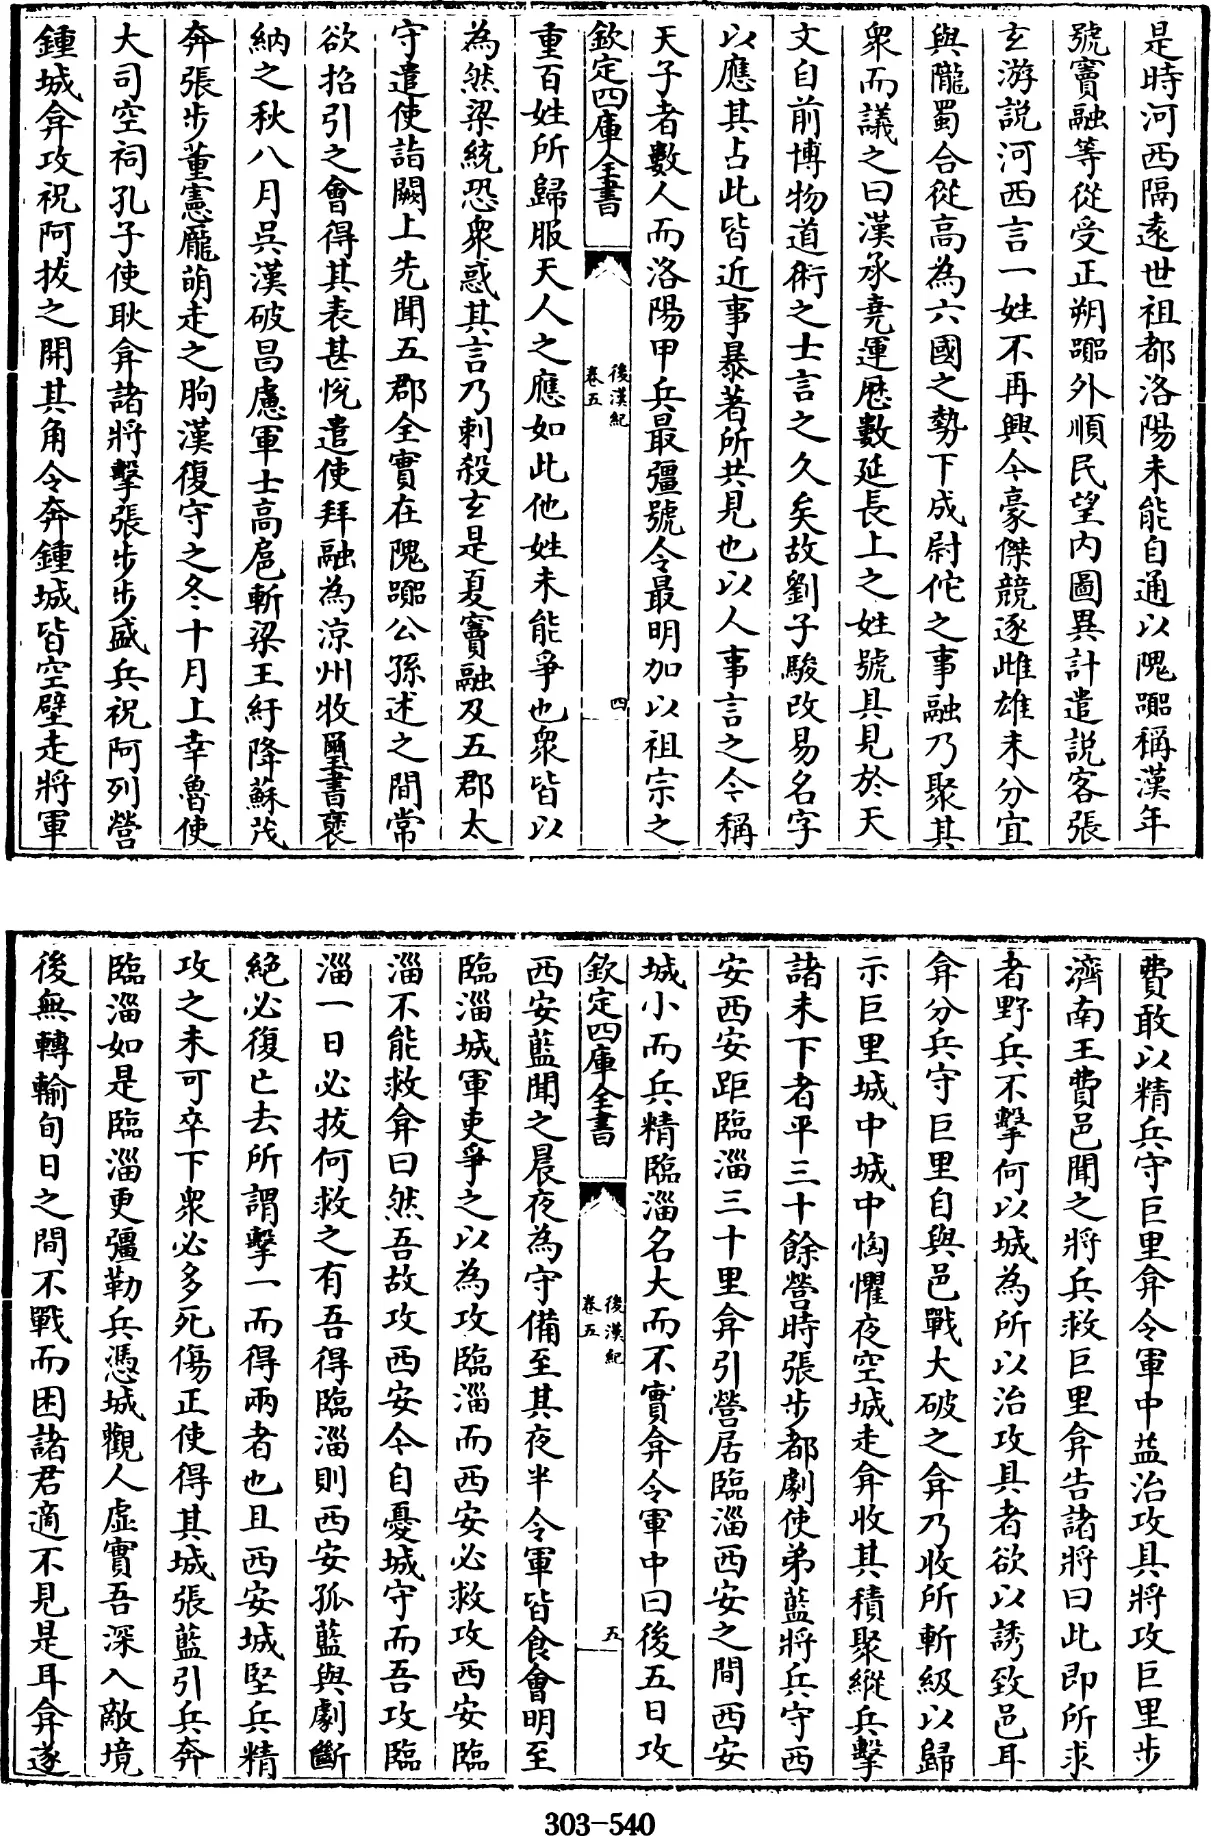 是時河西隔逺世祖都洛陽未能自通以隗嚻稱漢年
號竇融等從受正朔嚻外順民望内圖異計遣説客張
玄游説河西言一姓不再興今豪傑競逐雌雄未分宜
與隴蜀合從髙為六國之勢下成尉佗之事融乃聚其
衆而議之曰漢承堯運歴數延長上之姓號具見於天
文自前博物道術之士言之久矣故劉子駿改易名字
以應其占此皆近事暴著所共見也以人事言之今稱
天子者數人而洛陽甲兵最彊號令最明加以祖宗之
欽定四庫全書
後漢紀
卷五
四
重百姓所歸服天人之應如此他姓未能爭也衆皆以
為然梁統恐衆惑其言乃刺殺玄是夏竇融及五郡太
守遣使詣闕上先聞五郡全實在隗嚻公孫述之間常
欲招引之會得其表甚恱遣使拜融為涼州牧璽書褒
納之秋八月吳漢破昌慮軍士髙扈斬梁王紆降蘇茂
奔張步董憲龐萌走之朐漢復守之冬十月上幸魯使
大司空祠孔子使耿弇諸將擊張步步盛兵祝阿列營
鍾城弇攻祝阿拔之開其角令奔鍾城皆空壁走將軍
費敢以精兵守巨里弇令軍中益治攻具將攻巨里步
濟南王費邑聞之將兵救巨里弇告諸將曰此即所求
者野兵不擊何以城為所以治攻具者欲以誘致邑耳
弇分兵守巨里自與邑戰大破之弇乃收所斬級以歸
示巨里城中城中恟懼夜空城走弇收其積聚縱兵擊
諸未下者平三十餘營時張步都劇使弟藍將兵守西
安西安距臨淄三十里弇引營居臨淄西安之間西安
城小而兵精臨淄名大而不實弇令軍中曰後五日攻
欽定四庫全書
後漢紀
卷五
五
西安藍聞之晨夜為守備至其夜半令軍皆食會明至
臨淄城軍吏爭之以為攻臨淄而西安必救攻西安臨
淄不能救弇曰然吾故攻西安今自憂城守而吾攻臨
淄一日必拔何救之有吾得臨淄則西安孤藍與劇斷
絶必復亡去所謂擊一而得兩者也且西安城堅兵精
攻之未可卒下衆必多死傷正使得其城張藍引兵奔
臨淄如是臨淄更彊勒兵憑城觀人虛實吾深入敵境
後無轉輸旬日之間不戰而困諸君適不見是耳弇遂
303-540